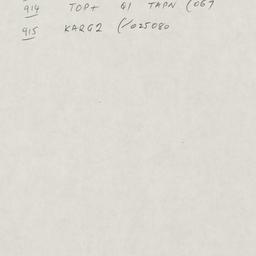 914 TOP+ G1 TAPN (067
915 KARG2 (/025080